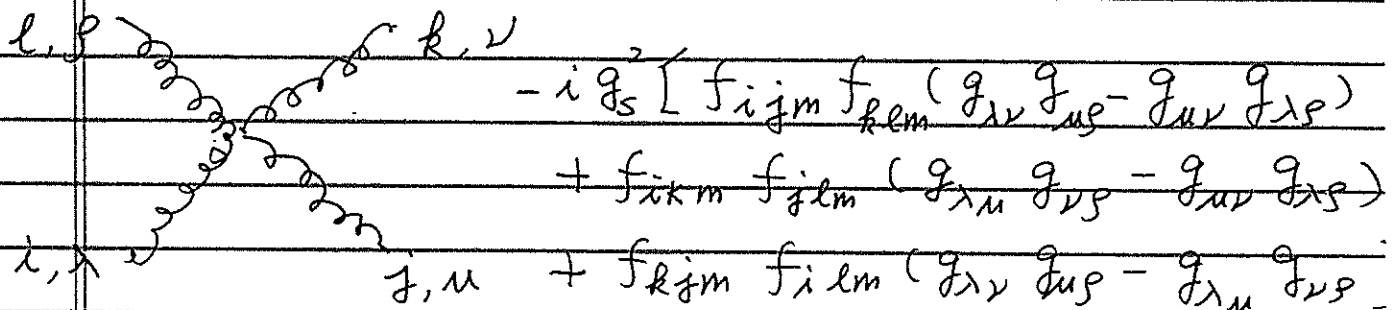 l, ρ k, ν
- i g_s^2 [ f_{ijm} f_{klm} ( g_{λν} g_{μρ} - g_{μν} g_{λρ} )
+ f_{ikm} f_{jlm} ( g_{λμ} g_{νρ} - g_{μν} g_{λρ} )
i, λ j, μ + f_{kjm} f_{ilm} ( g_{λν} g_{μρ} - g_{λμ} g_{νρ}